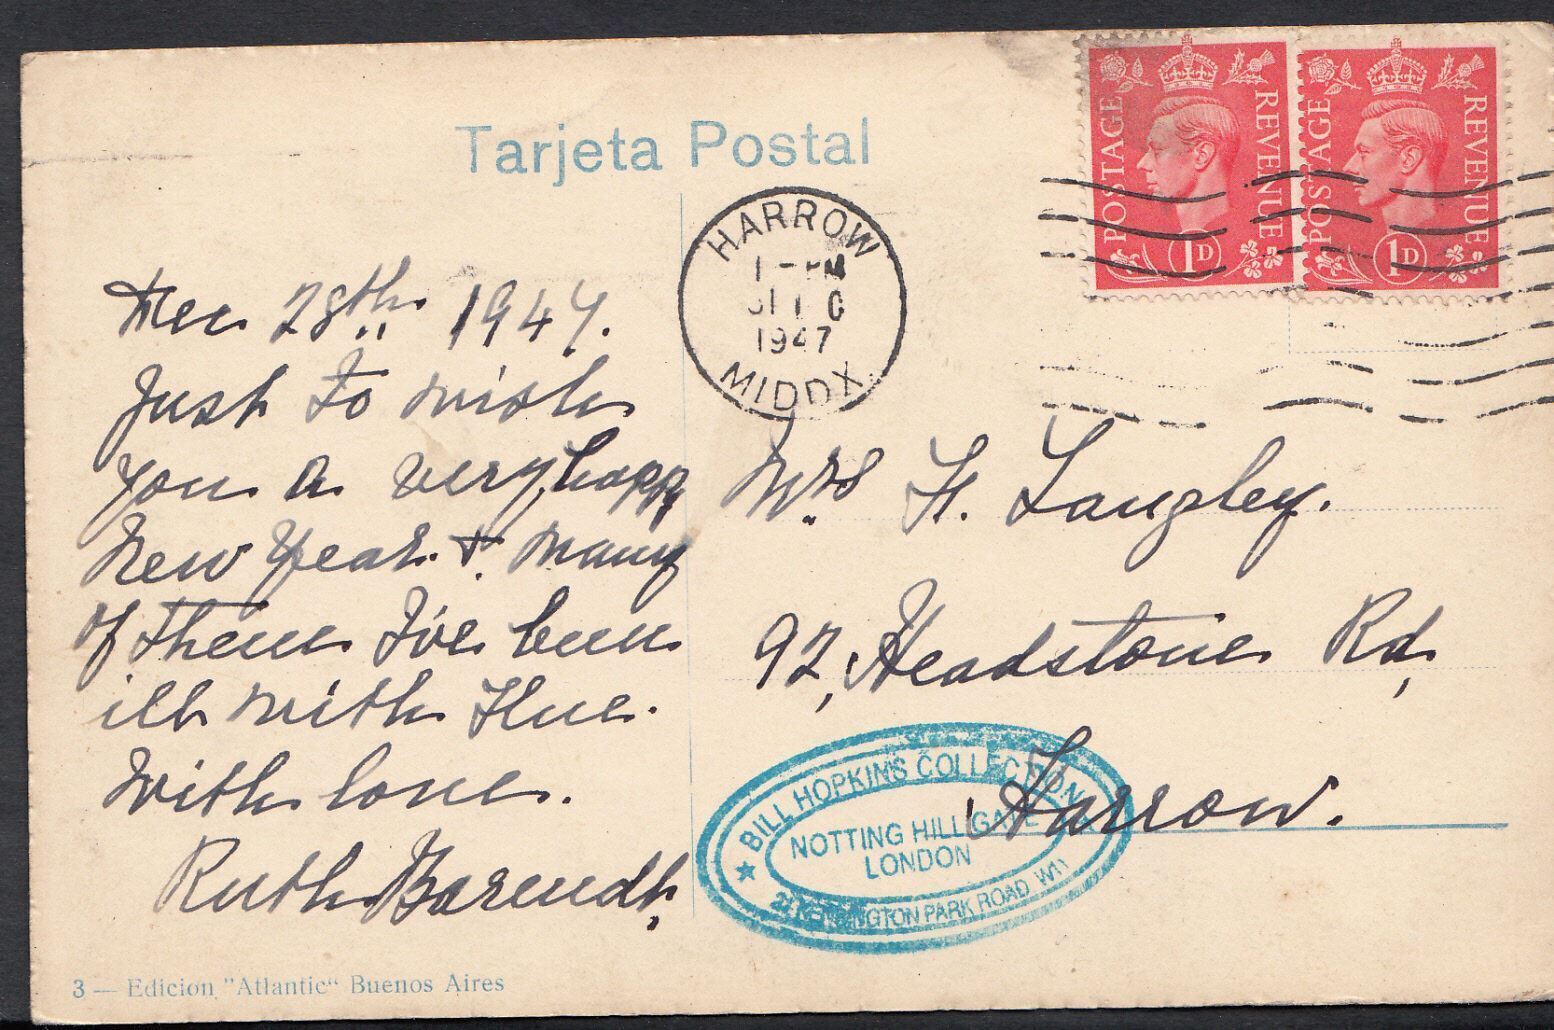 Tarjeta Postal
POSTAGE REVENUE
1D
POSTAGE REVENUE
1D
HARROW
1-PM
1947
MIDDX.
Dec 28th 1947.
Just to wish
you a very happy
New Year & many
of them I've been
ill with Flue.
With love.
Ruth Barendt.
Mrs H. Langley.
92, Headstone Rd,
Harrow.
★ BILL HOPKINS COLLECTION
NOTTING HILL GATE
LONDON
KENSINGTON PARK ROAD W11
3 — Edicion "Atlantic" Buenos Aires